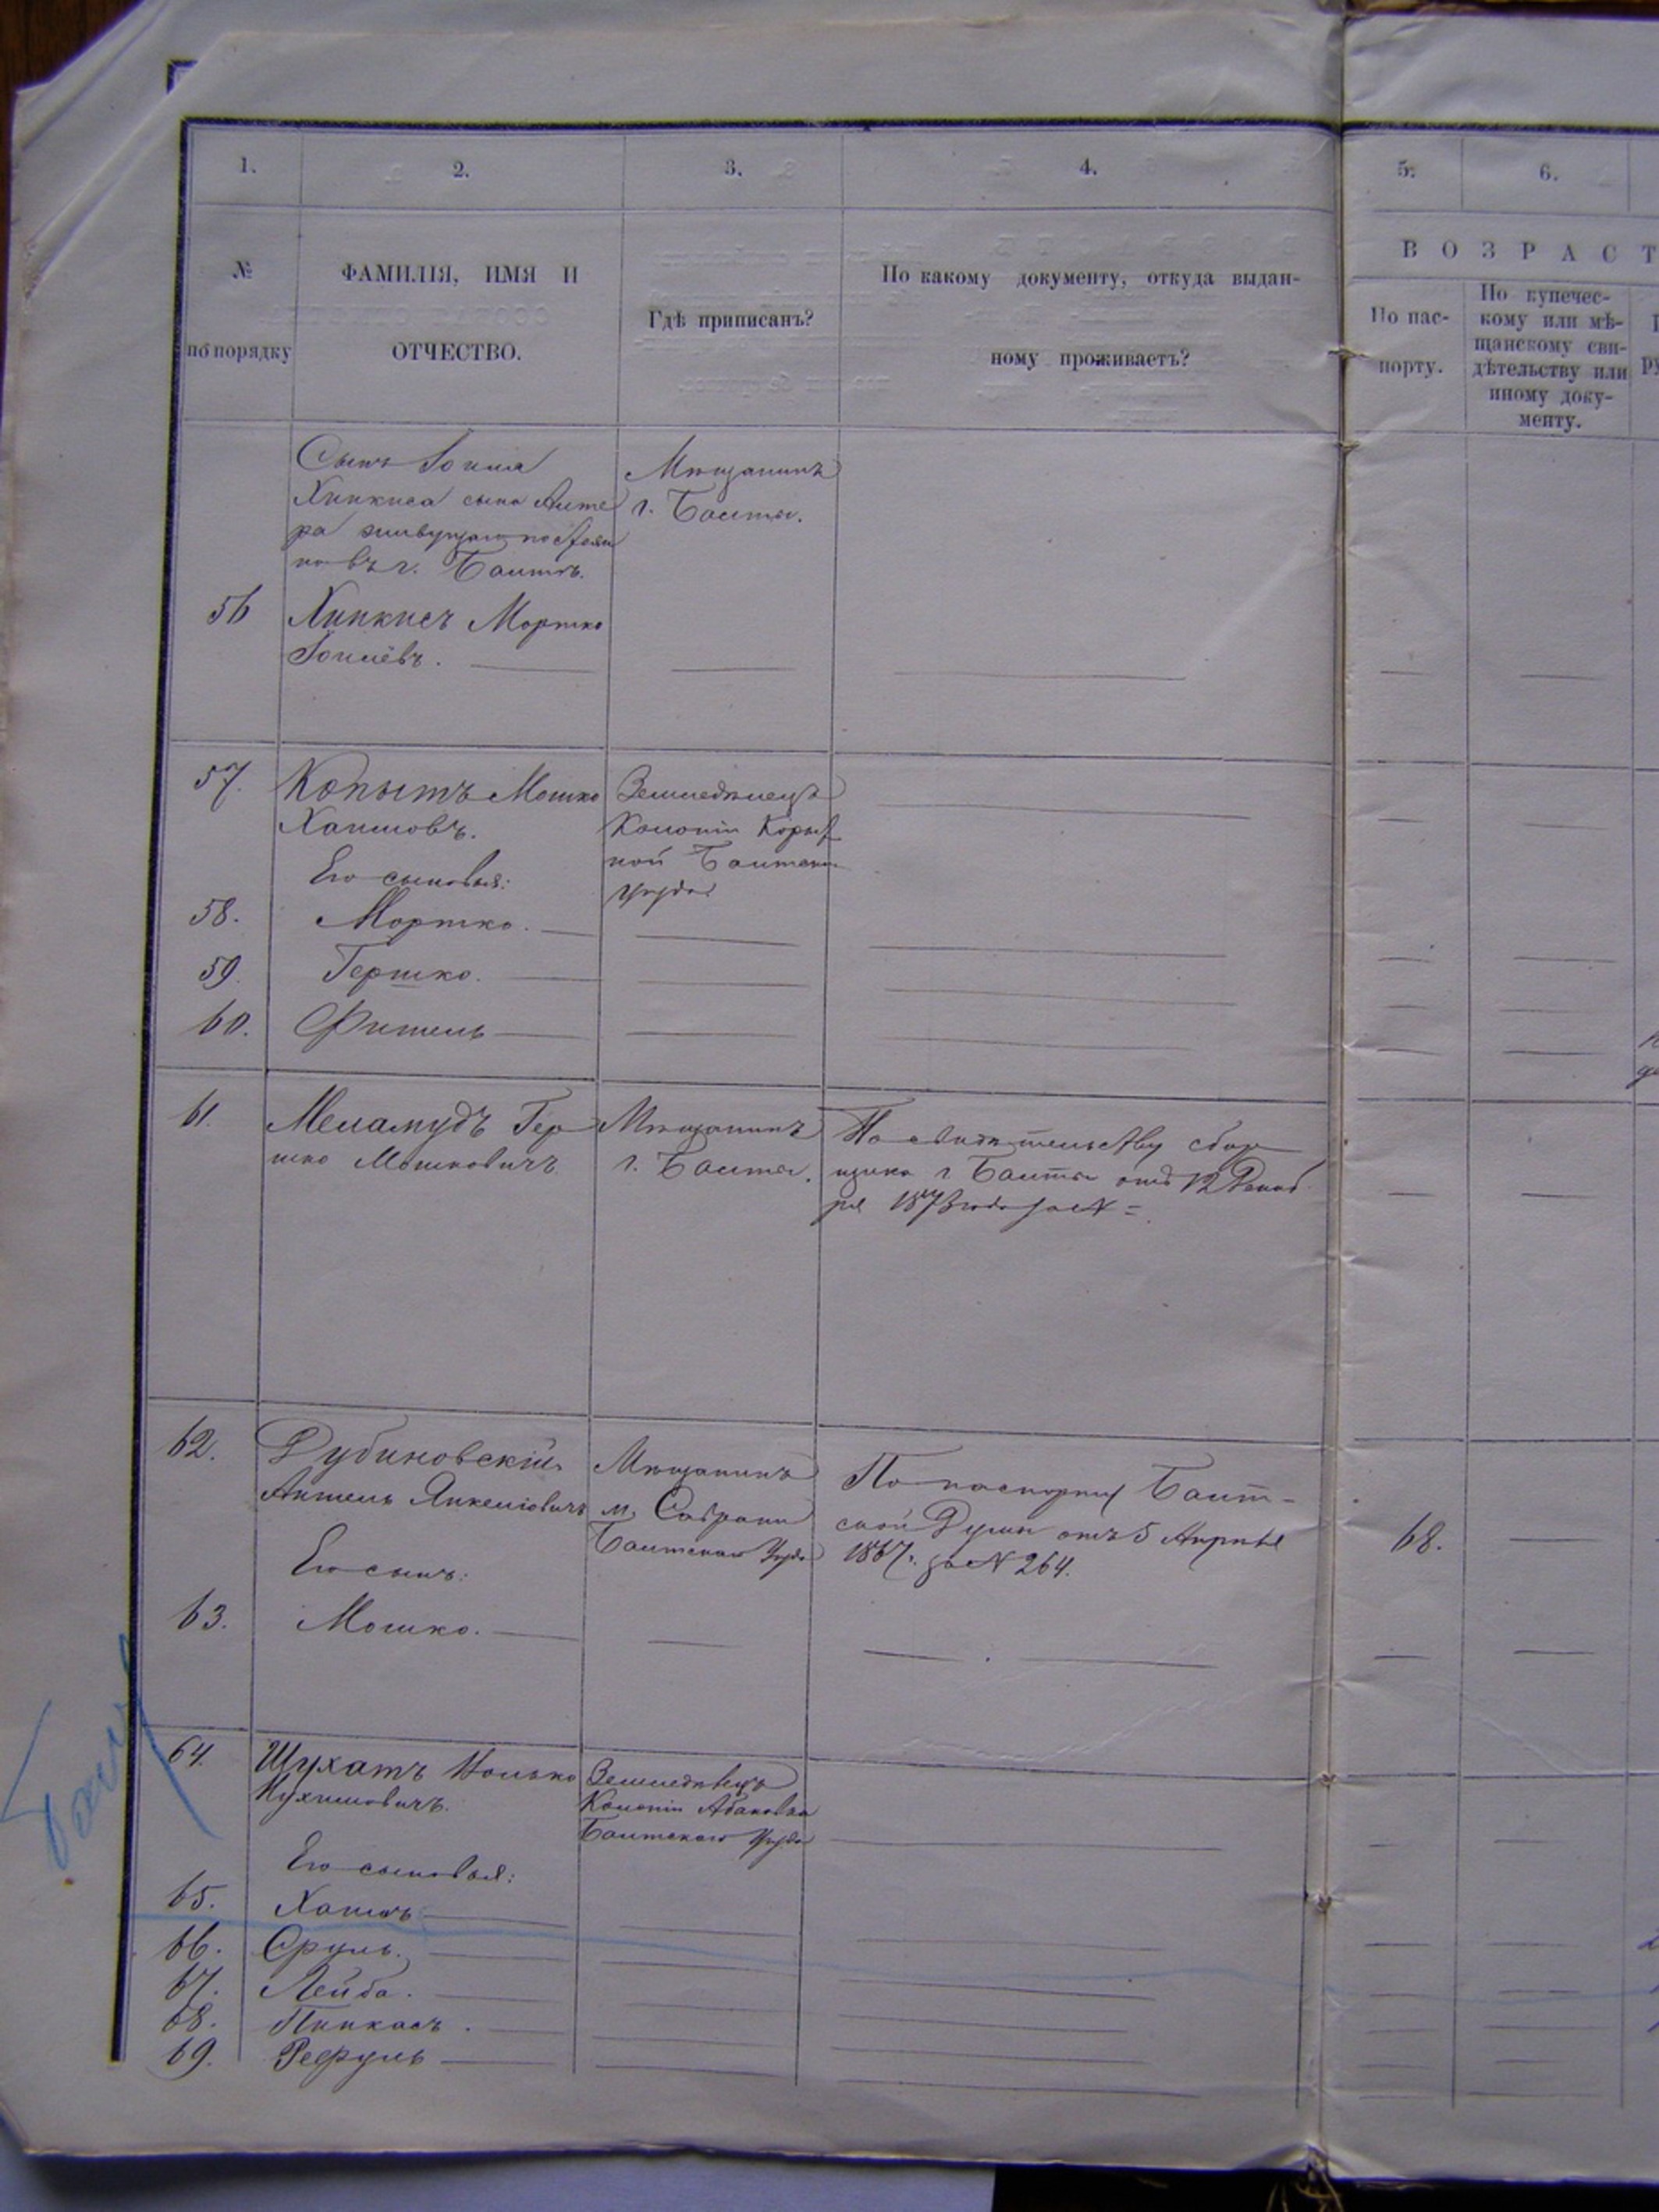 1.
2.
3.
4.
5.
6.
№
по порядку
ФАМИЛІЯ, ИМЯ И
ОТЧЕСТВО.
Гдѣ приписанъ?
По какому документу, откуда выдан-
ному проживаетъ?
ВОЗРАСТ
По пас-
порту.
По купечес-
кому или мѣ-
щанскому сви-
дѣтельству или
иному доку-
менту.
Сынъ Іоиля
Хинкиса сына Антe
ра живущаго постоян
но въ г. Балтѣ.
Мѣщанинъ
г. Балты.
56
Хинкисъ Мортко
Іоилевъ.
57.
Копытъ Мошко
Хаимовъ.
Земледѣлецъ
Колоніи Корыт
ной Балтскаго
уѣзда
Его сыновья:
58.
Мортко.
59.
Гершко.
60.
Фишель
61.
Меламудъ Гер
шко Мошковичъ
Мѣщанинъ
г. Балты.
По свидѣтельству сбор
щика г Балты отъ 12 Декаб
ря 1873 года за №
62.
Дубиновскій
Аншель Янкеліовичъ
Мѣщанинъ
м. Саврани
Балтскаго Уѣзда
По паспорту Балт-
ской Думы отъ 5 Апрѣля
1867 г. за № 264.
68.
Его сынъ:
63.
Мошко.
64.
Шухатъ Іолько
Нухимовичъ.
Земледѣлецъ
Колоніи Абаковка
Балтскаго Уѣзда
Его сыновья:
65.
Хаимъ
66.
Сруль.
67.
Лейба.
68.
Пинкасъ.
69.
Рефуль